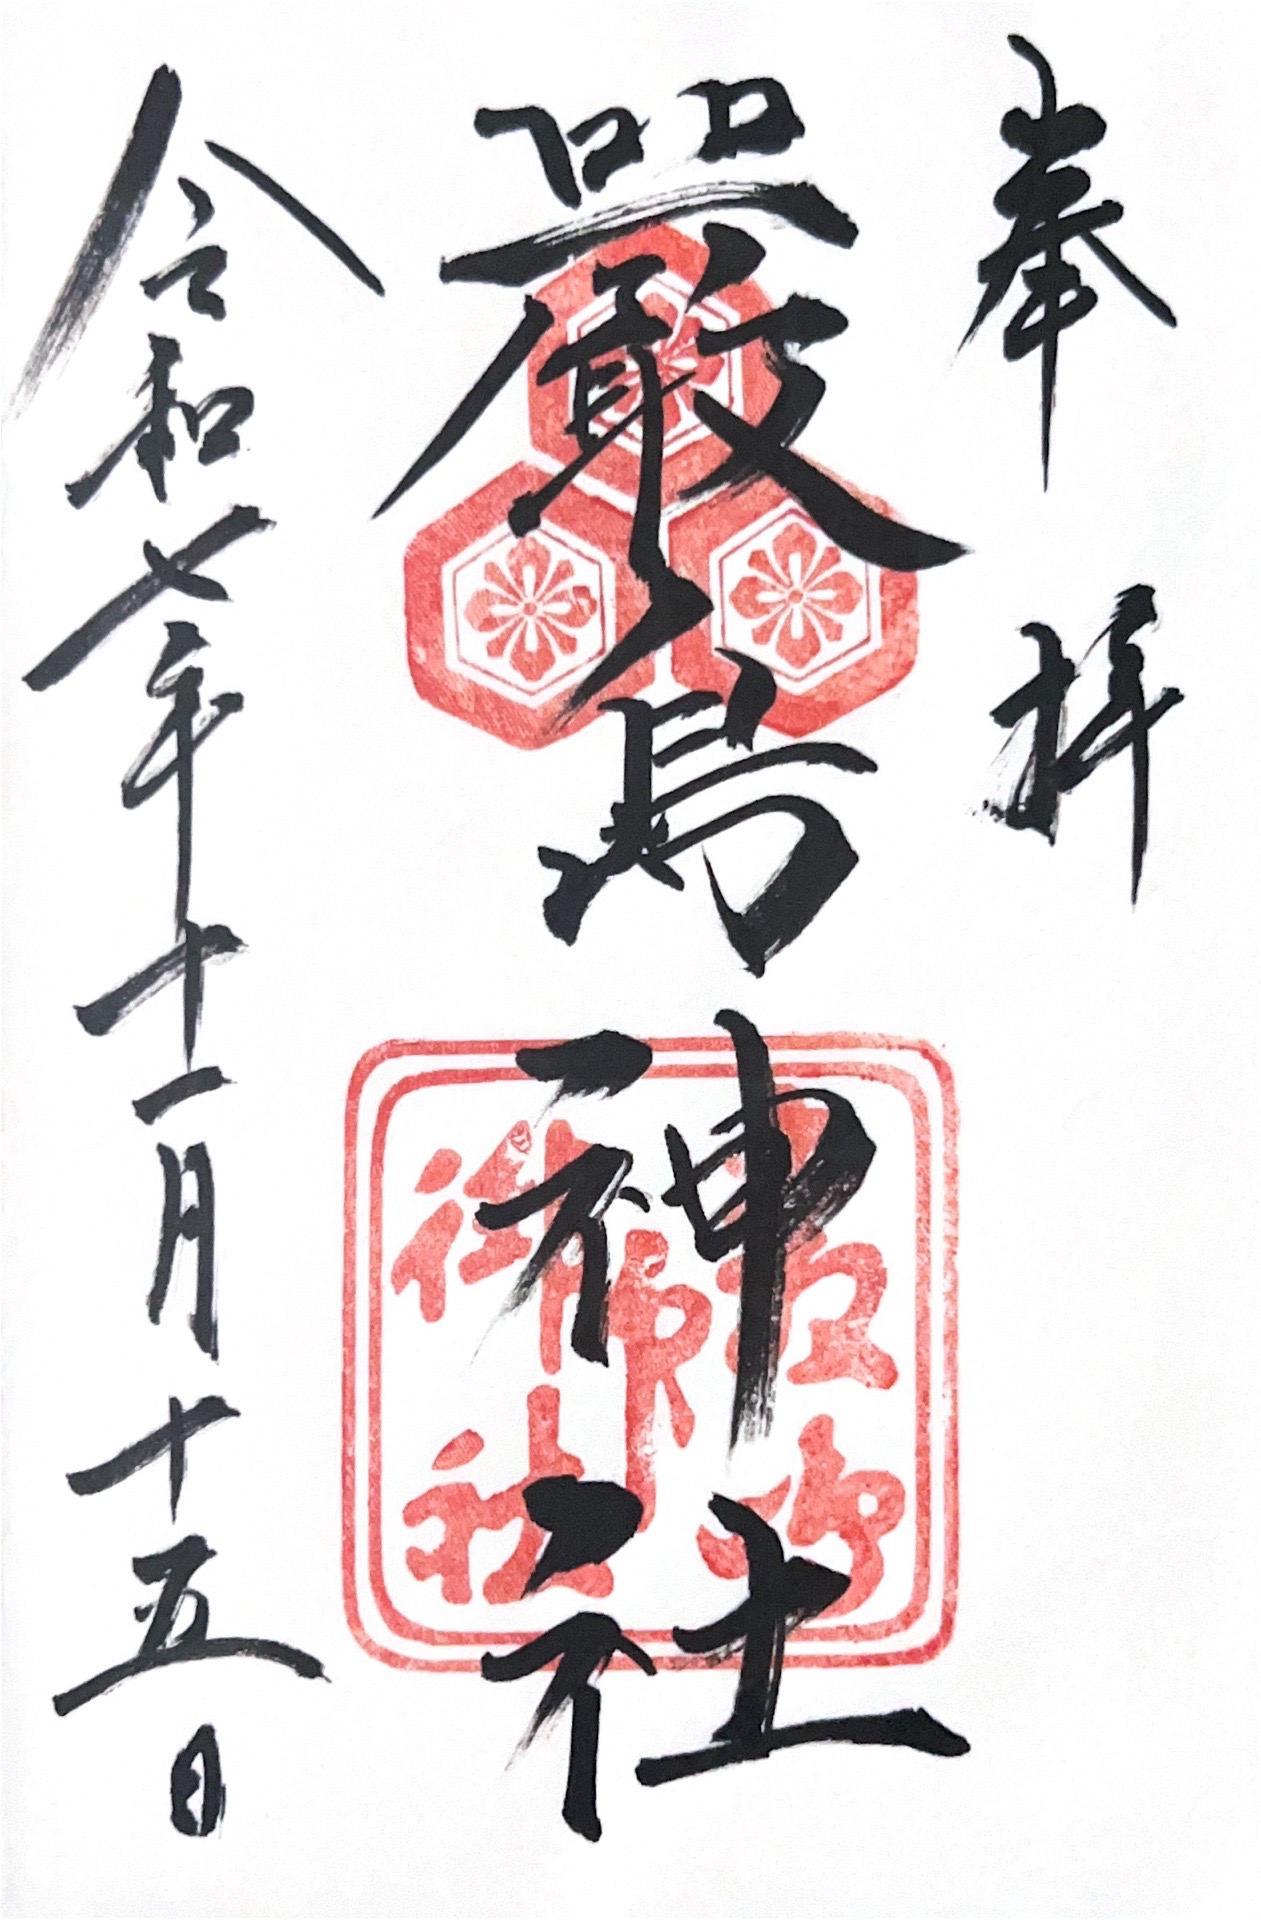 奉拝
嚴島神社
令和七年十一月十五日